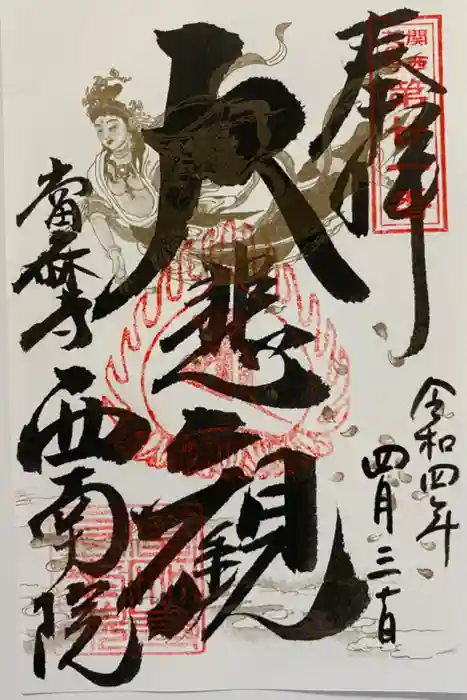 奉拝
関西
大悲観
當麻寺
西南院
令和四年
四月三十日